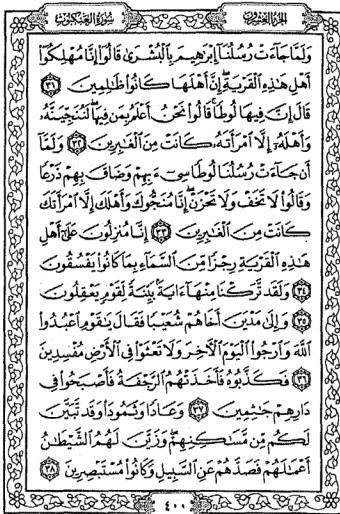 الجزء العشرون
سورة العنكبوت
وَلَمَّا جَآءَتْ رُسُلُنَآ إِبْرَٰهِيمَ بِٱلْبُشْرَىٰ قَالُوٓا۟ إِنَّا مُهْلِكُوٓا۟
أَهْلِ هَٰذِهِ ٱلْقَرْيَةِ إِنَّ أَهْلَهَا كَانُوا۟ ظَٰلِمِينَ ٣١
قَالَ إِنَّ فِيهَا لُوطًا قَالُوا۟ نَحْنُ أَعْلَمُ بِمَن فِيهَا لَنُنَجِّيَنَّهُۥ
وَأَهْلَهُۥٓ إِلَّا ٱمْرَأَتَهُۥ كَانَتْ مِنَ ٱلْغَٰبِرِينَ ٣٢ وَلَمَّآ
أَن جَآءَتْ رُسُلُنَا لُوطًا سِىٓءَ بِهِمْ وَضَاقَ بِهِمْ ذَرْعًا
وَقَالُوا۟ لَا تَخَفْ وَلَا تَحْزَنْ إِنَّا مُنَجُّوكَ وَأَهْلَكَ إِلَّا ٱمْرَأَتَكَ
كَانَتْ مِنَ ٱلْغَٰبِرِينَ ٣٣ إِنَّا مُنزِلُونَ عَلَىٰٓ أَهْلِ
هَٰذِهِ ٱلْقَرْيَةِ رِجْزًا مِّنَ ٱلسَّمَآءِ بِمَا كَانُوا۟ يَفْسُقُونَ
٣٤ وَلَقَد تَّرَكْنَا مِنْهَآ ءَايَةًۢ بَيِّنَةً لِّقَوْمٍ يَعْقِلُونَ
٣٥ وَإِلَىٰ مَدْيَنَ أَخَاهُمْ شُعَيْبًا فَقَالَ يَٰقَوْمِ ٱعْبُدُوا۟
ٱللَّهَ وَٱرْجُوا۟ ٱلْيَوْمَ ٱلْءَاخِرَ وَلَا تَعْثَوْا۟ فِى ٱلْأَرْضِ مُفْسِدِينَ
٣٦ فَكَذَّبُوهُ فَأَخَذَتْهُمُ ٱلرَّجْفَةُ فَأَصْبَحُوا۟ فِى
دَارِهِمْ جَٰثِمِينَ ٣٧ وَعَادًا وَثَمُودَا۟ وَقَد تَّبَيَّنَ
لَكُم مِّن مَّسَٰكِنِهِمْ وَزَيَّنَ لَهُمُ ٱلشَّيْطَٰنُ
أَعْمَٰلَهُمْ فَصَدَّهُمْ عَنِ ٱلسَّبِيلِ وَكَانُوا۟ مُسْتَبْصِرِينَ ٣٨
٤٠٠